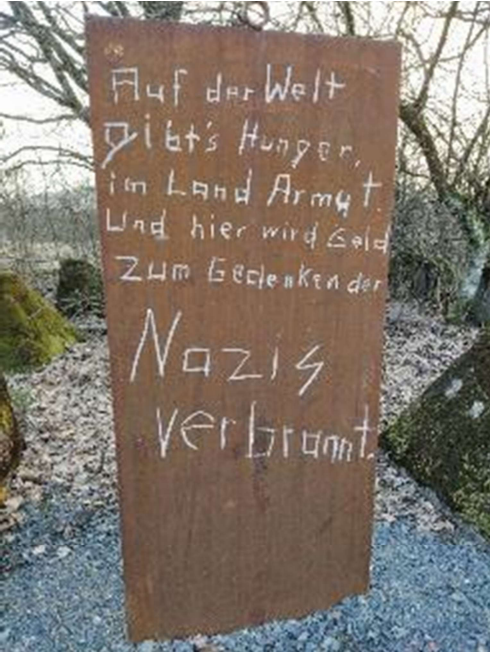 Auf der Welt
gibt's Hunger,
im Land Armut.
Und hier wird Geld
zum Gedenken der
Nazis
verbrannt.